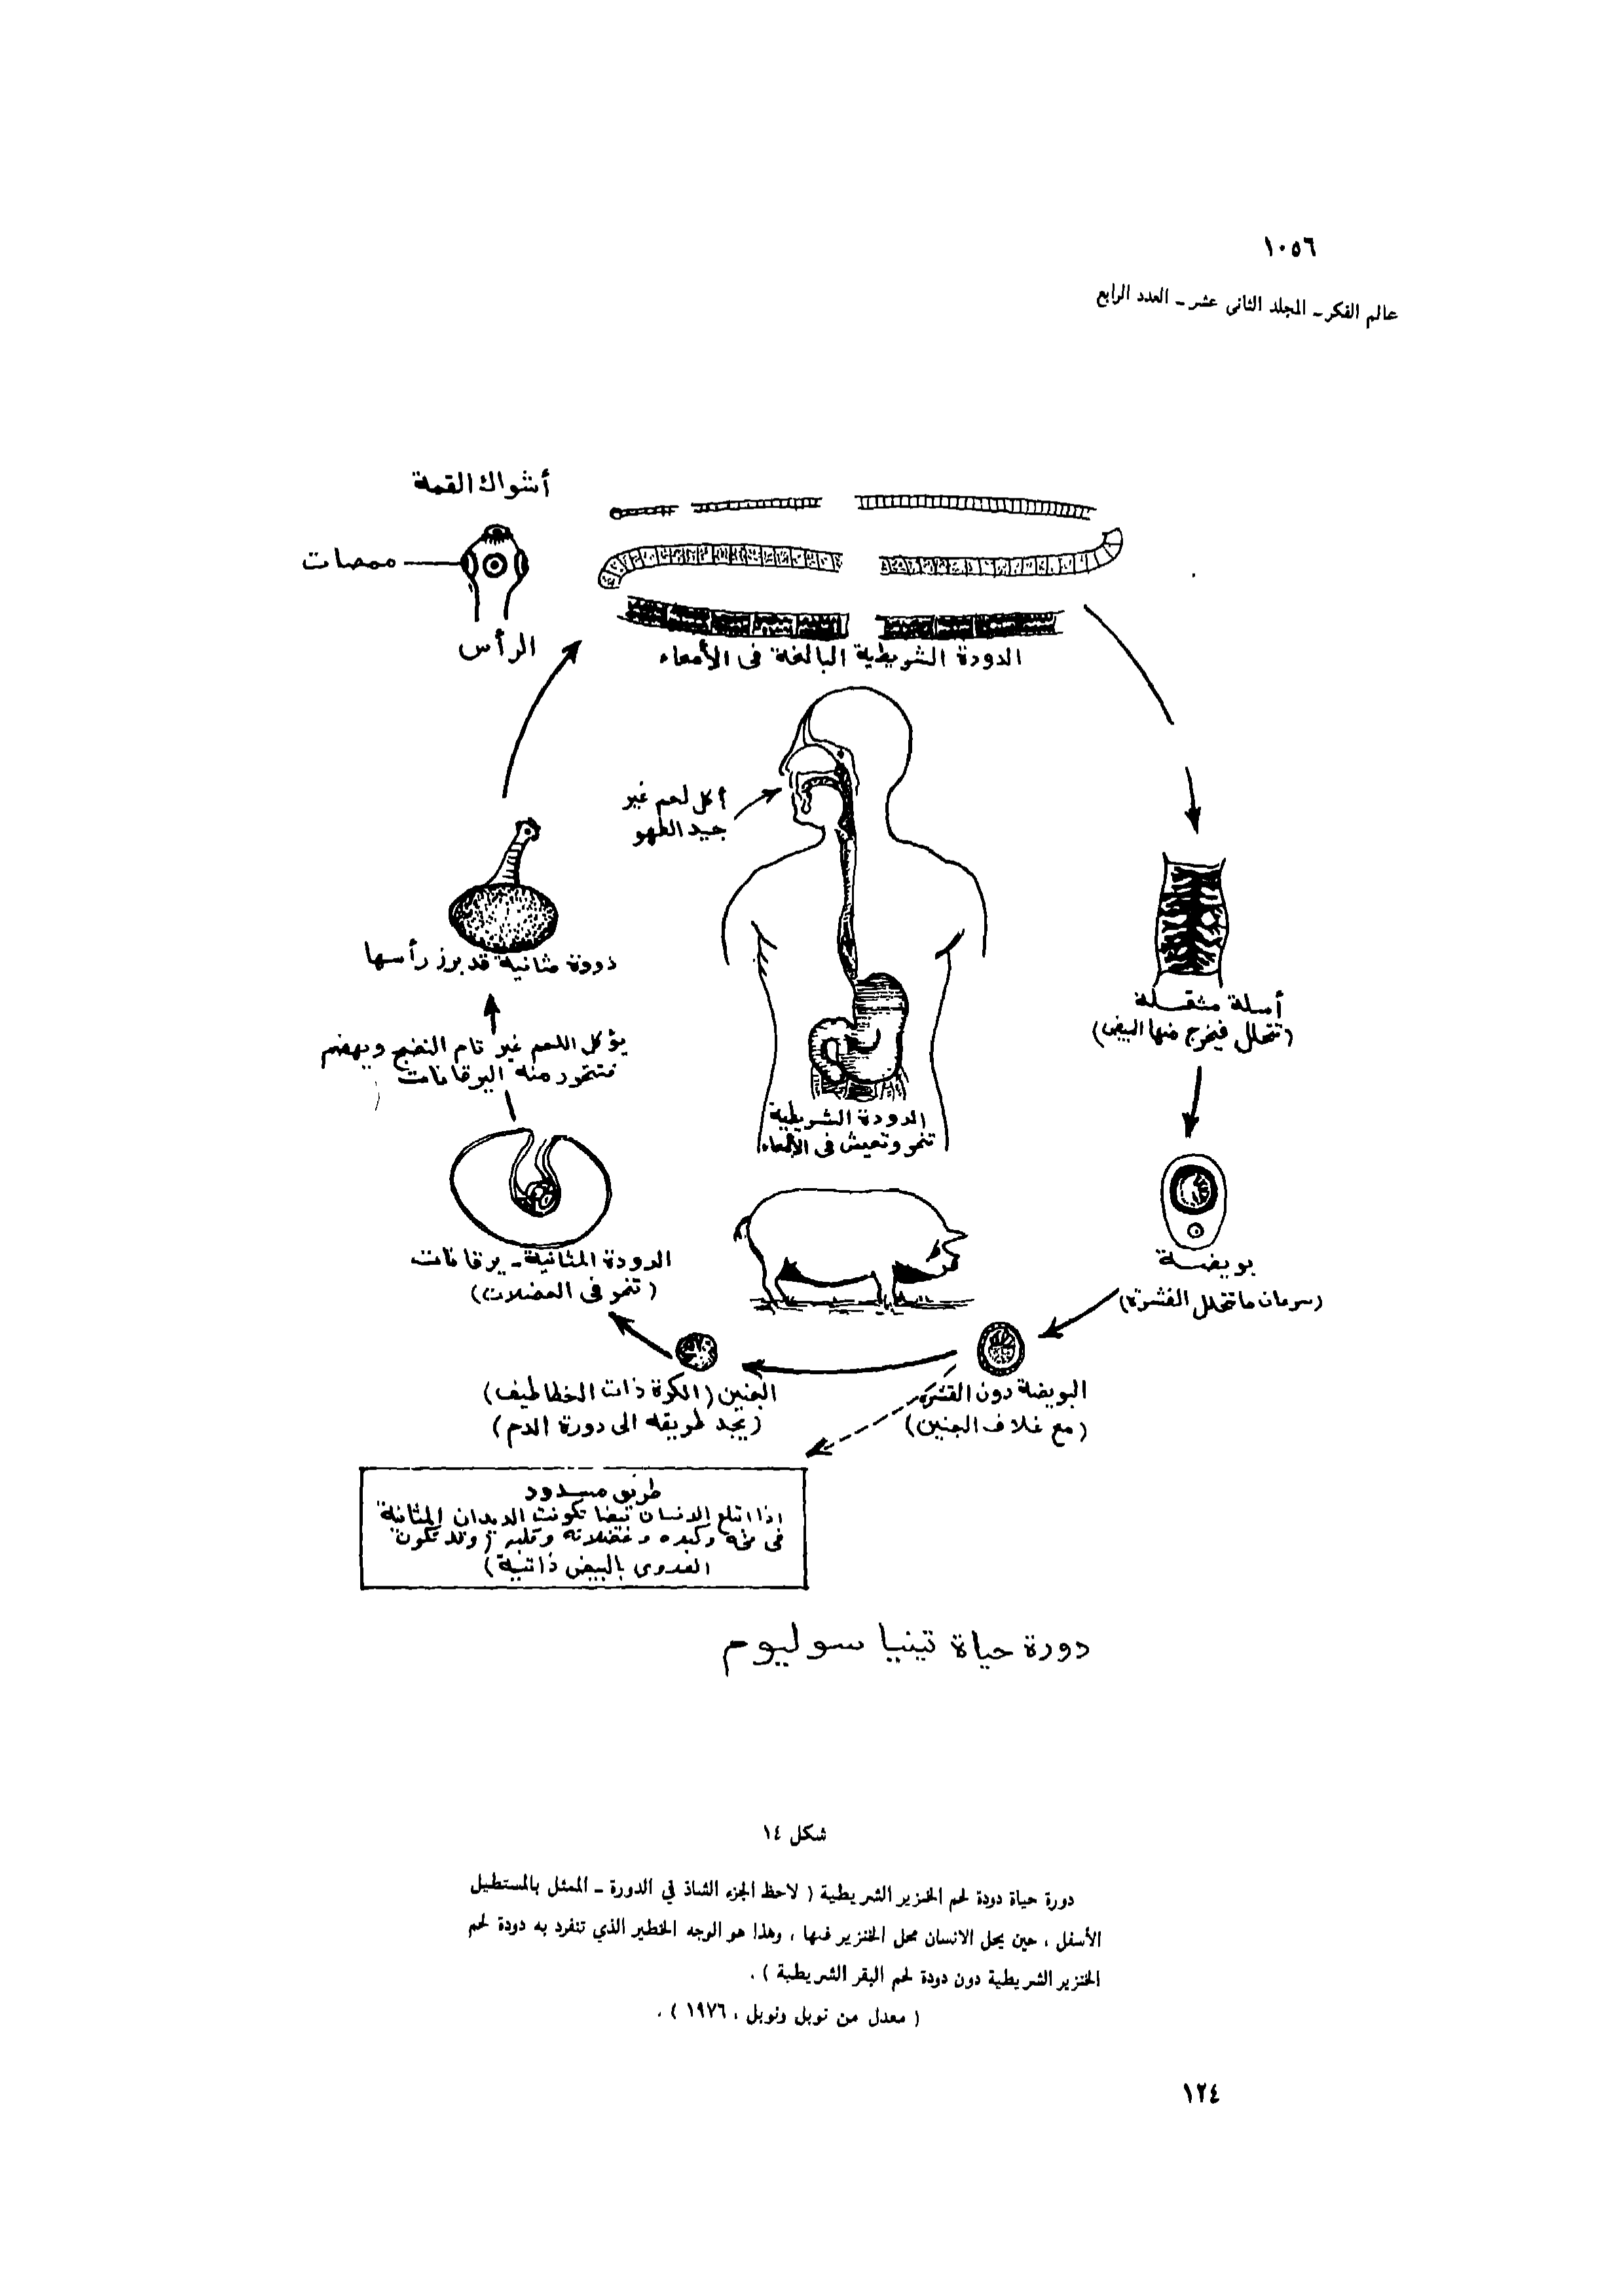 ١٠٥٦
عالم الفكر ـ المجلد الثانى عشر ـ العدد الرابع
أشواك القمة
ممصات
الرأس
الدودة الشريطية البالغة فى الأمعاء
أكل لحم غير
جيد الطهو
دودة مثانية قد برز رأسها
أسلة مثقلة
(تتحلل فيخرج منها البيض)
يؤكل اللحم غير تام النضج ويهضم
فتتحرر منه اليرقانات
الدودة الشريطية
تنمو وتعيش فى الأمعاء
الدودة المثانية ـ يرقانات
(تنمو فى العضلات)
بويضة
(سرعان ماتتحلل القشرة)
البويضة دون القشرة
(مع غلاف الجنين)
الجنين (الكرة ذات الخطاطيف)
(يجد طريقه الى دورة الدم)
طريق مسدود
اذا ابتلع الانسان بيضا تكونت الديدان المثانية
فى مخه وكبده وعضلاته وقلبه (وقد تكون
العدوى بالبيض ذاتية)
دورة حياة تينيا سوليوم
شكل ١٤
دورة حياة دودة لحم الخنزير الشريطية ( لاحظ الجزء الشاذ في الدورة ـ الممثل بالمستطيل
الأسفل ، حين يحل الانسان محل الخنزير فيها ، وهذا هو الوجه الخطير الذي تنفرد به دودة لحم
الخنزير الشريطية دون دودة لحم البقر الشريطية ) .
( معدل من نوبل ونوبل ، ١٩٧٦ ) .
١٢٤